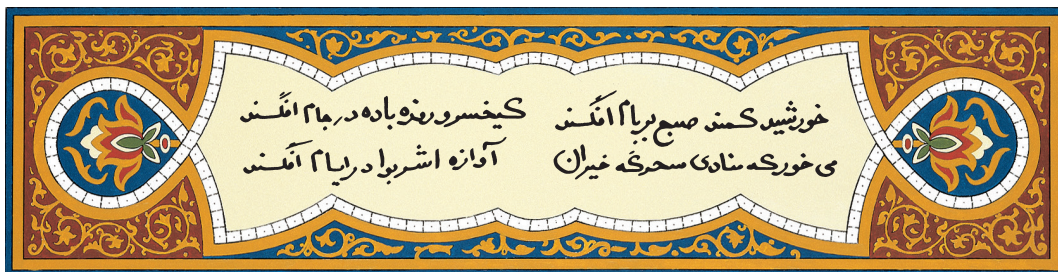 خورشید کمند صبح بر بام افکند کیخسرو باده در جام افکند
می خور که منادی سحرگه خیزان آوازه اشربوا در ایام افکند